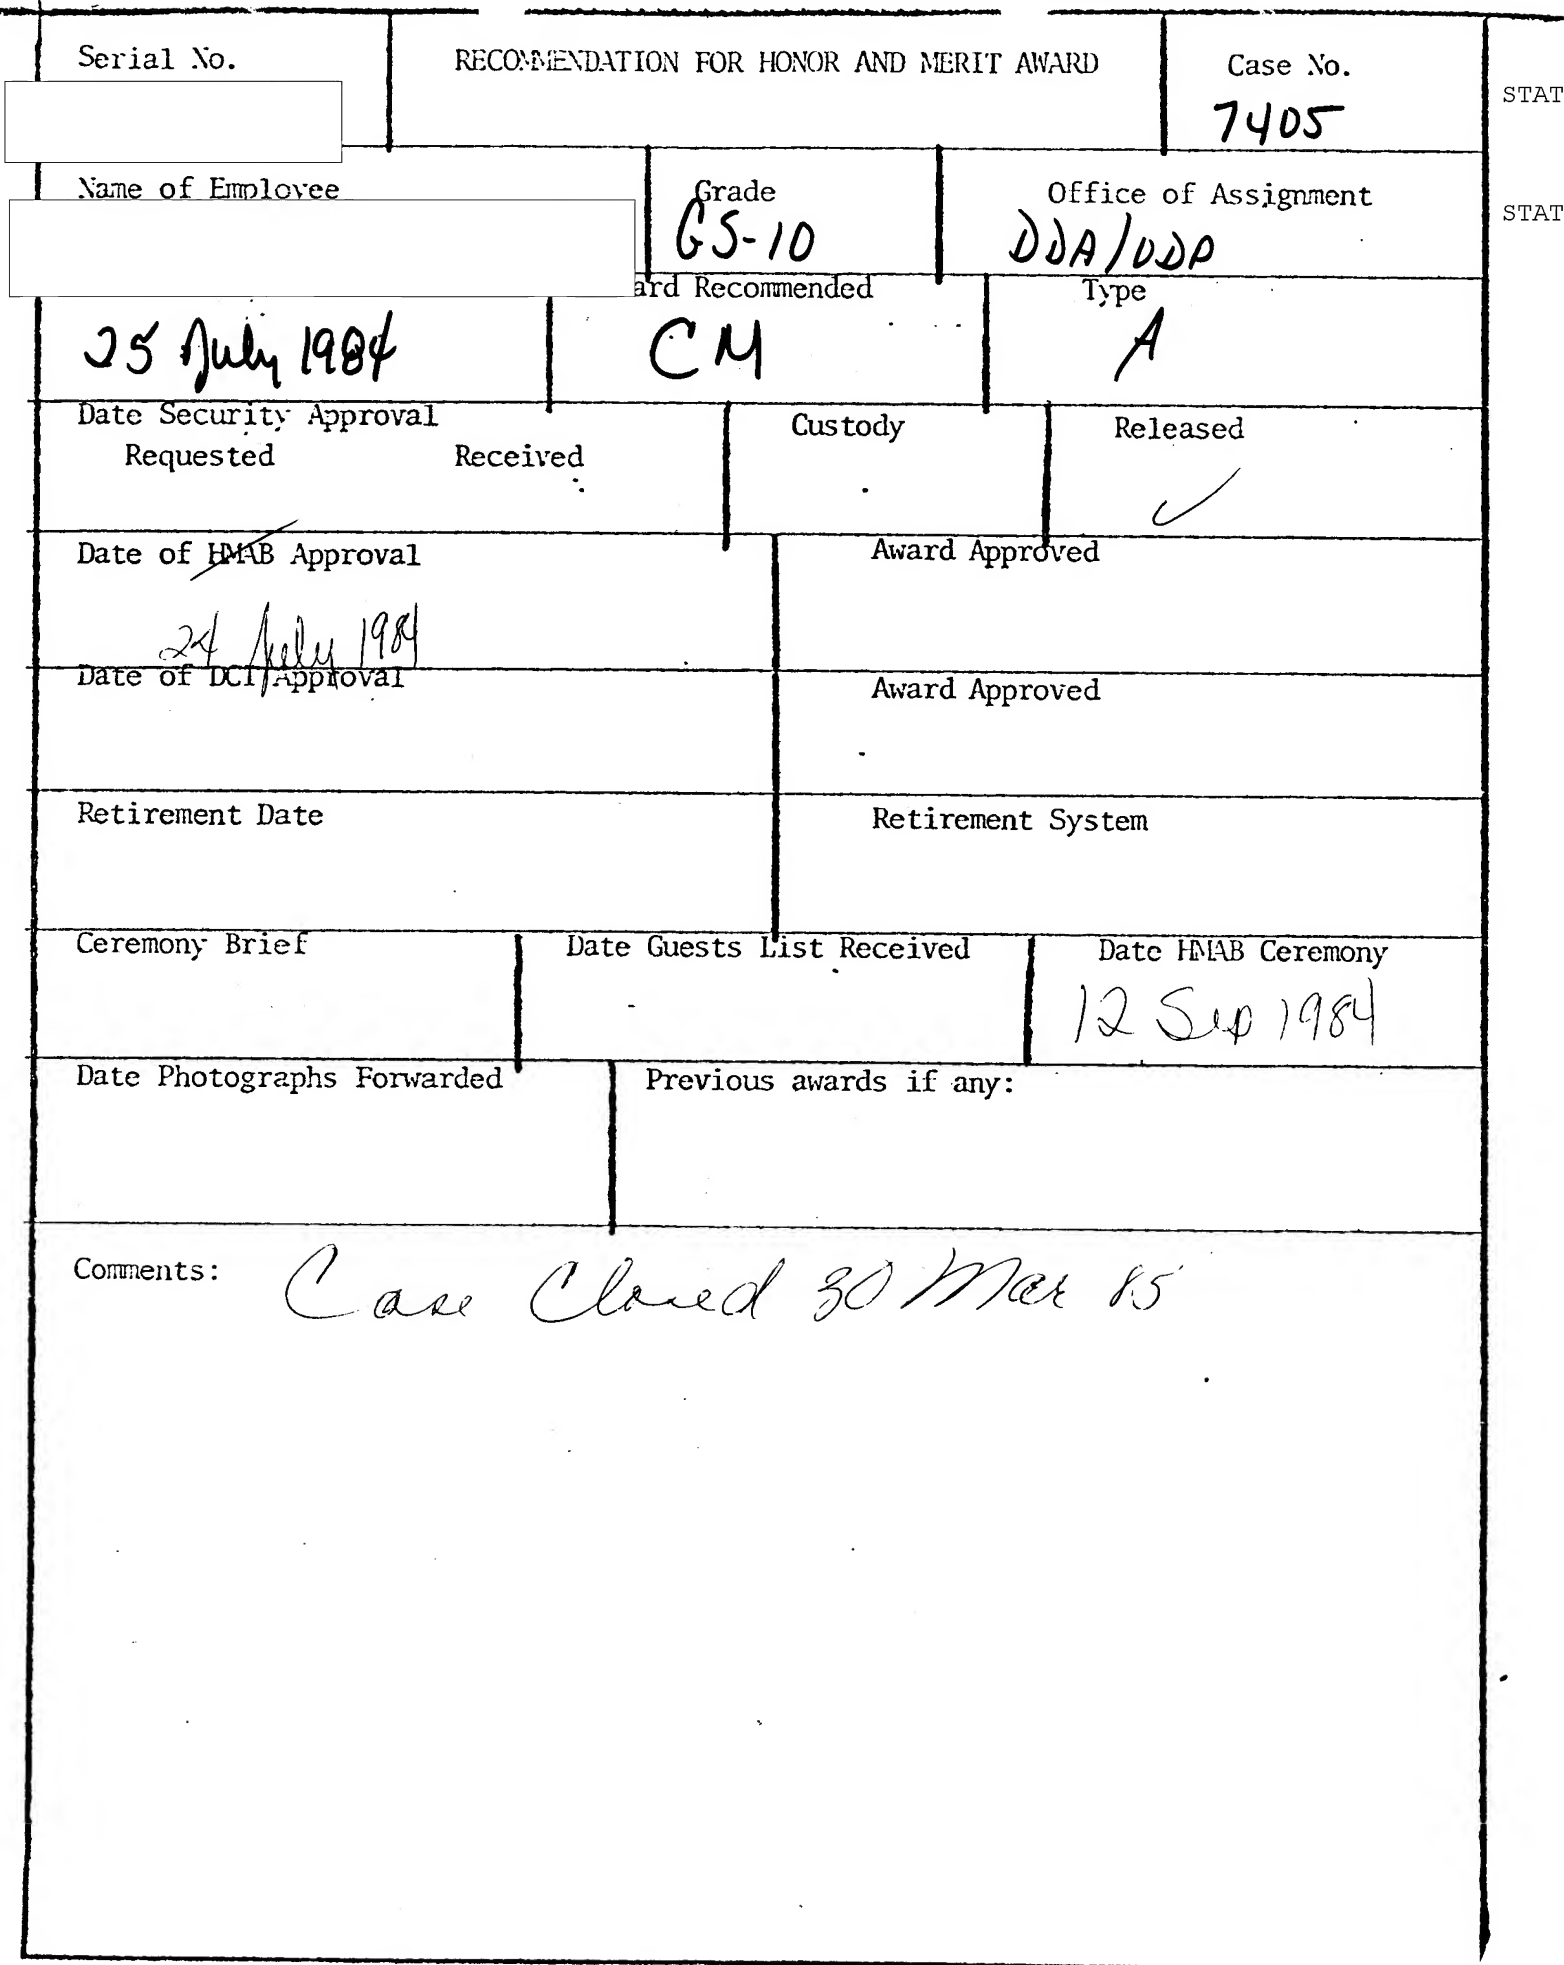 Serial No.
RECOMMENDATION FOR HONOR AND MERIT AWARD
Case No.
7405
STAT
Name of Employee
Grade
GS-10
Office of Assignment
DDA/ODP
STAT
ard Recommended
Type
25 July 1984
CM
A
Date Security Approval
Requested Received
Custody
Released
✓
Date of HMAB Approval
24 July 1984
Award Approved
Date of DCI Approval
Award Approved
Retirement Date
Retirement System
Ceremony Brief
Date Guests List Received
Date HMAB Ceremony
12 Sep 1984
Date Photographs Forwarded
Previous awards if any:
Comments: Case Closed 30 Mar 85